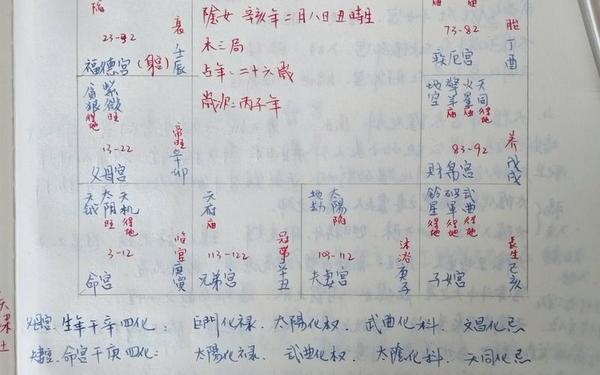 陷
23-32
衰
壬辰
福德宫(身宫)
陰女 辛亥年二月八日丑時生
木三局
占年:二十六歲
歲次:丙子年
73-82
胎
丁酉
疾厄宫
貪狼 紫微
得地 旺
13-22
帝旺
辛卯
父母宫
地空 擎羊 火星 天同
庙 庙 得地
83-92
养
戊戌
财帛宫
天鉞 太阴 天机
旺 得地
3-12
臨官
庚寅
命宫
天府
庙
113-122
冠帶
辛丑
兄弟宫
地劫 太陽
陷
103-112
沐浴
庚子
夫妻宫
鈴星 破軍 武曲
得地 得地 得地
長生
己亥
子女宫
生年干辛四化: 巨門化禄、太陽化权、武曲化科、文昌化忌
命宫干庚四化: 太陽化禄、武曲化权、太陰化科、天同化忌